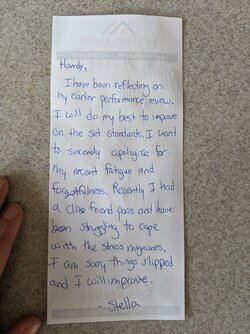 Howdy,
I have been reflecting on
my earlier performance review.
I will do my best to improve
on the set standards. I want
to sincerely apologize for
my recent fatigue and
forgetfulness. Recently I had
a close friend pass and have
been struggling to cope
with the stress migraines.
I am sorry things slipped
and I will improve.
- Stella